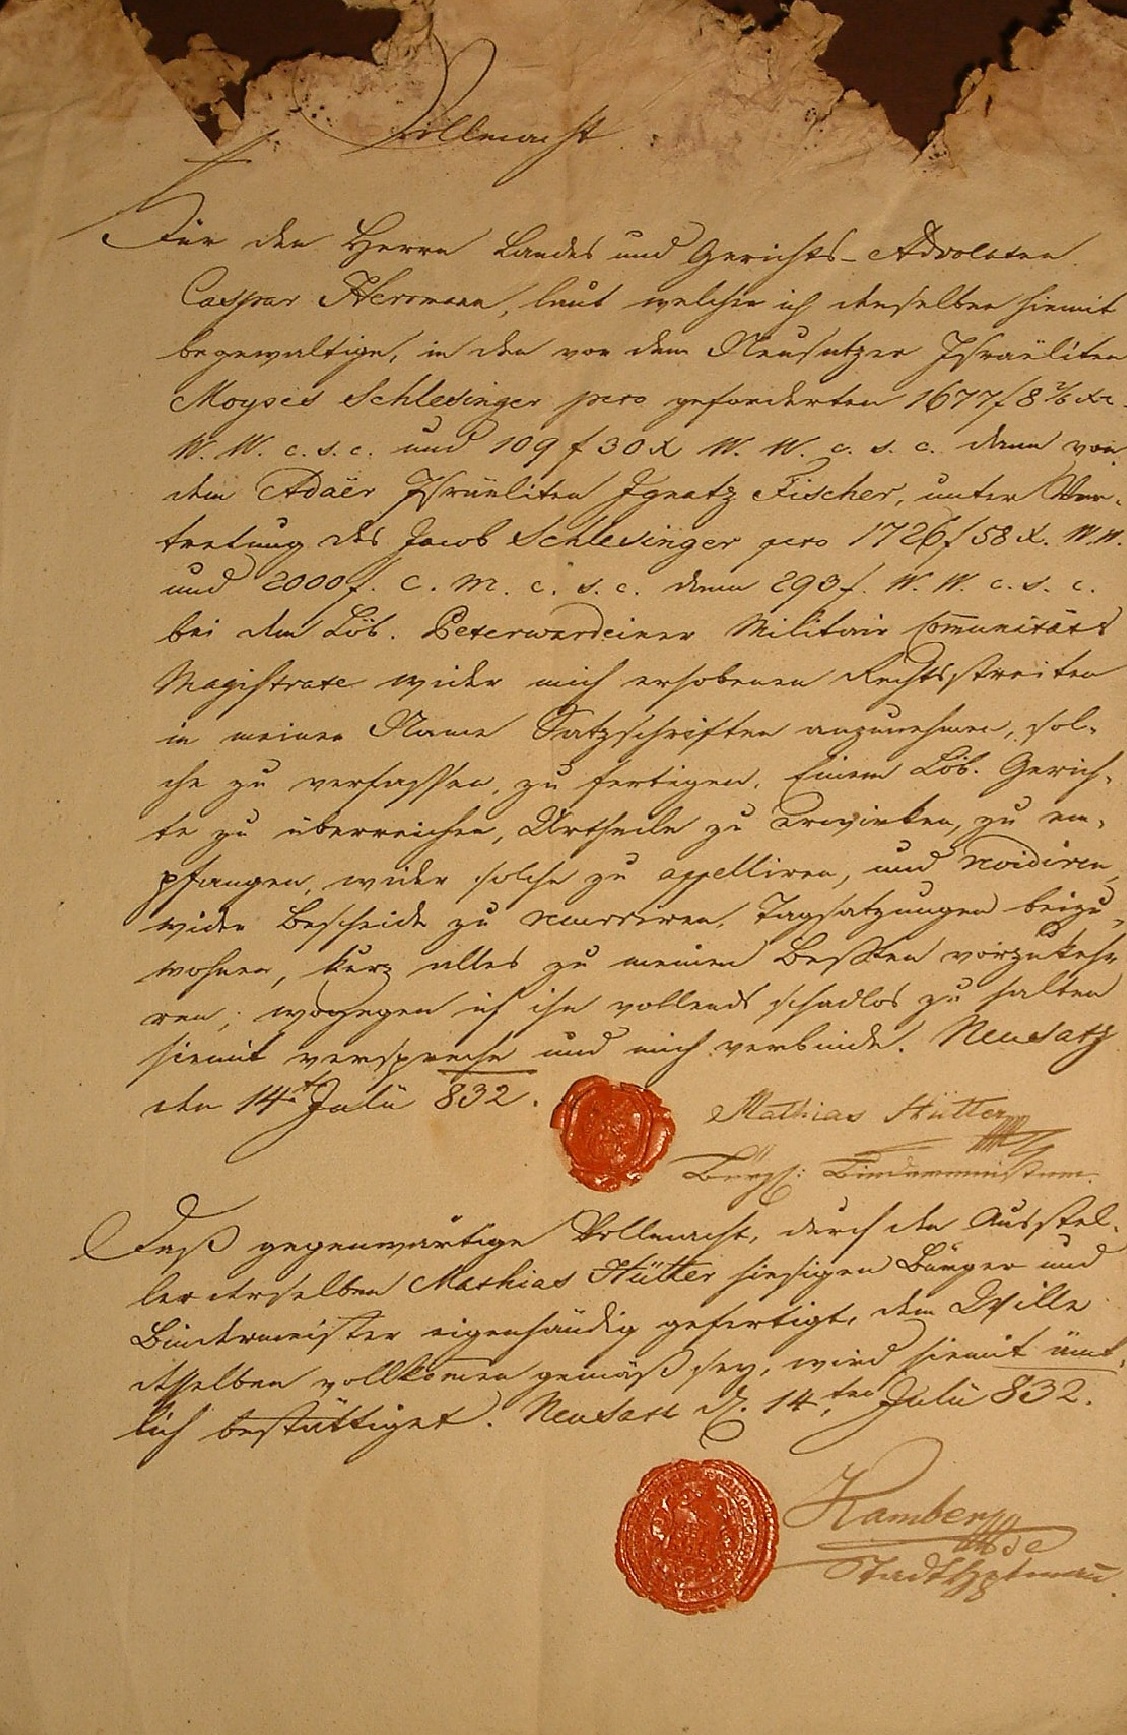 Vollmacht
Für den Herrn Landes und Gerichts-Advocaten
Caspar Herrmann, laut welcher ich denselben hiemit
begewaltige, in den von dem Neusatzer Israëliten
Moyses Schlesinger pcto geforderten 1677 f 8 2/6 xr.
W. W. c. s. c. und 109 f 30 x W. W. c. s. c. dann von
dem Adaër Israëliten Ignatz Fischer, unter Ver-
tretung des Jacob Schlesinger pcto 1726 f 58 x. W. W.
und 2000 f. C. M. c. s. c. dann 293 f. W. W. c. s. c.
bei dem Löb. Peterwardeiner Militair Communitäts
Magistrate wider mich erhobenen Rechtsstreiten
in meinen Name Satzschriften anzunehmen, sol-
che zu verfassen, zu fertigen, Einem Löb. Gerich-
te zu überreichen, Urtheile zu erwirken, zu em-
pfangen, wider solche zu appelliren, und revidiren,
wider Bescheide zu recurriren, Tagsatzungen beizu-
wohnen, kurz alles zu meinen Besten vorzukeh-
ren; wogegen ich ihn vollends schadlos zu halten
hiemit verspreche und mich verbinde. Neusatz
den 14t Julii 832.
Mathias Hütter
Bürgl: Bindermeister.
Daß gegenwärtige Vollmacht, durch den Ausstel-
ler derselben Mathias Hütter hiesigen Bürger und
Bindermeister eigenhändig gefertigt, dem Wille
desselben vollkomen gemäß sey, wird hiemit ämt-
lich bestättiget. Neusatz d. 14ten Julii 832.
Kamber
Stadthptman